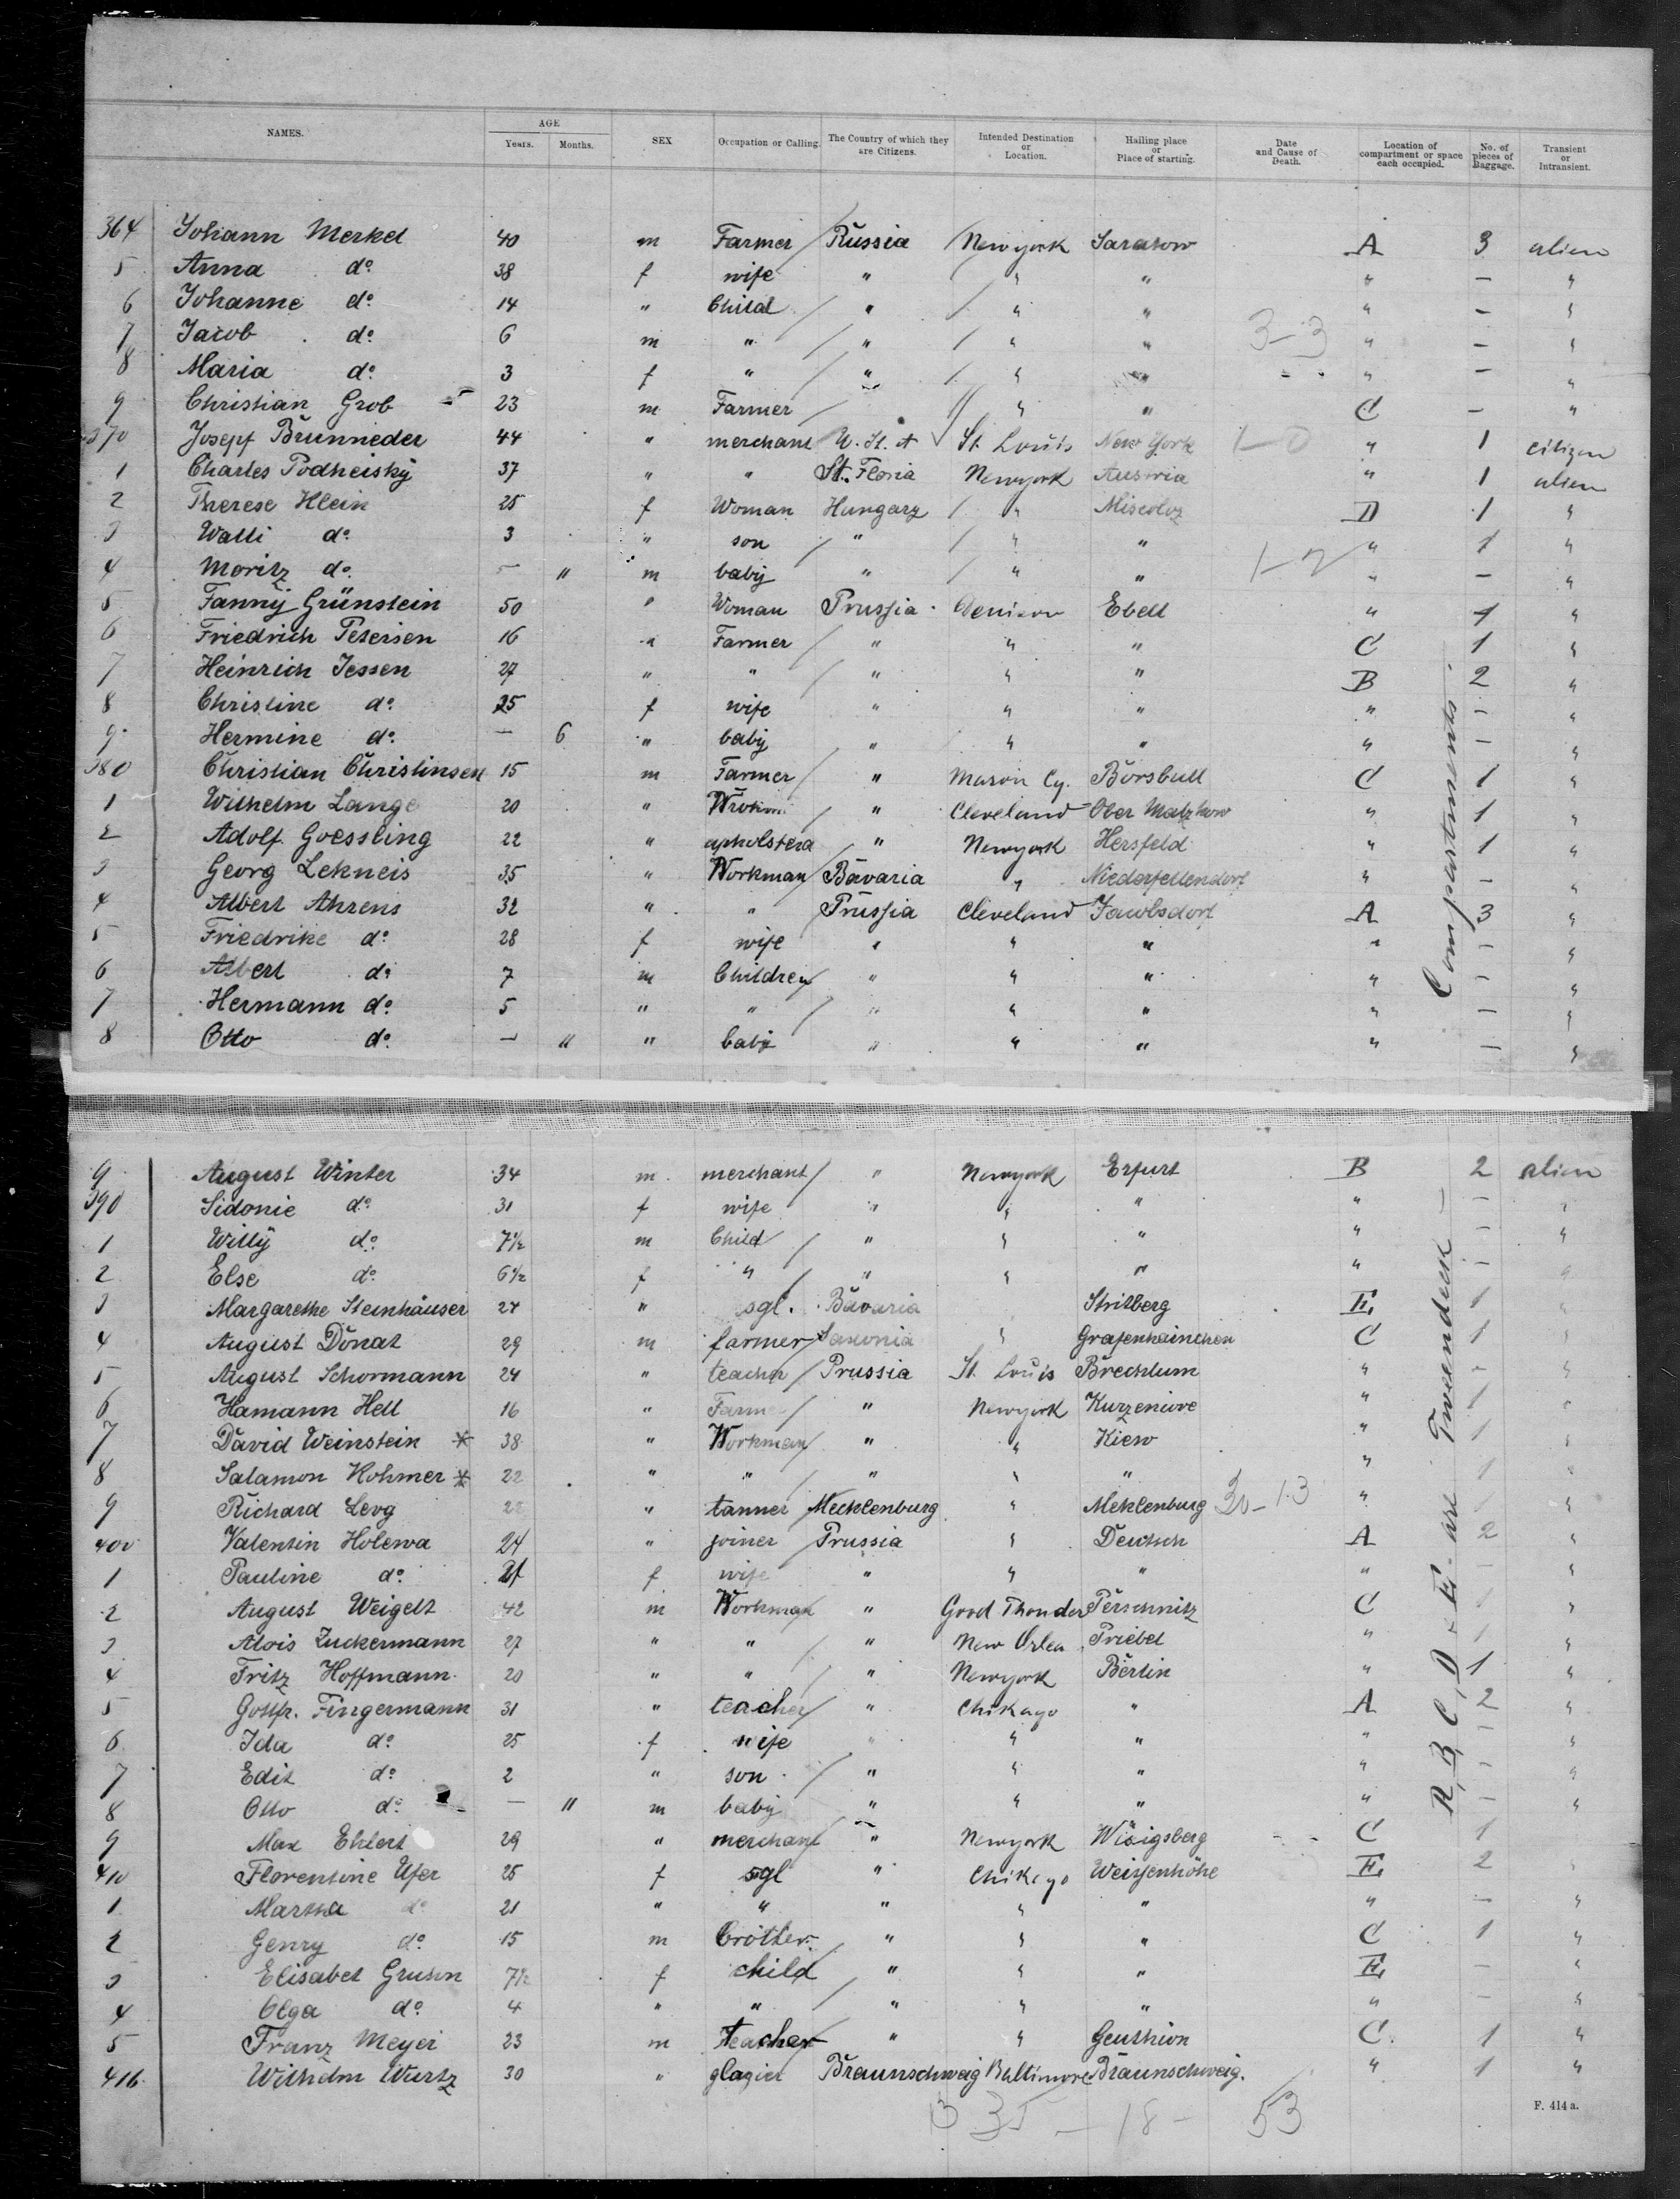 NAMES. AGE Years. Months. SEX Occupation or Calling. The Country of which they are Citizens. Intended Destination or Location. Hailing place or Place of starting. Date and Cause of Death. Location of compartment or space each occupied. No. of pieces of Baggage. Transient or Intransient.
364 Johann Merkel 40 m Farmer Russia Newyork Saratow A 3 alien
5 Anna do 38 f wife " " " " — "
6 Johanne do 14 " Child " " " " — "
7 Jacob do 6 m " " " " 3-3 " — "
8 Maria do 3 f " " " " " — "
9 Christian Grob 23 m Farmer " " C — "
370 Josepf Brunneder 44 " merchant U. St. A St. Louis New York 1-0 " 1 citizen
1 Charles Podheisky 37 " " St. Floria Newyork Austria " 1 alien
2 Therese Klein 25 f Woman Hungary " Miscolcz D 1 "
3 Walli do 3 " son " " " " 1 "
4 Moritz do — " m baby " " " 1-2 " — "
5 Fanny Grünstein 50 " Woman Prussia Denison Ebell " 1 "
6 Friedrich Petersen 16 " Farmer " " " C 1 "
7 Heinrich Jessen 27 " " " " " B 2 "
8 Christine do 25 f wife " " " " — "
9 Hermine do — 6 " baby " " " " — "
380 Christian Christinsen 15 m Farmer " Mason Cy. Borsbull C 1 "
1 Wilhelm Lange 20 " " Cleveland Ober Matzkow " 1 "
2 Adolf Goessling 22 " upholstera " Newyork Hersfeld " 1 "
3 Georg Lekneis 35 " Workman Bavaria " Niederfellendorf " — "
4 Albert Ahrens 32 " " Prussia Cleveland Jacobsdorf A 3 "
5 Friedrike do 28 f wife " " " " — "
6 Albert do 7 m Children " " " " — "
7 Hermann do 5 " " " " " " — "
8 Otto do — 11 " baby " " " " — "
9 August Winter 34 m merchant " Newyork Erfurt B 2 alien
390 Sidonie do 31 f wife " " " " — "
1 Willy do 7½ m Child " " " " — "
2 Else do 6½ f " " " " " — "
3 Margarethe Steinhäuser 24 " sgl. Bavaria Stritberg E 1 "
4 August Donat 29 m farmer Saxonia " Grafenhainchen C 1 "
5 August Schormann 24 " teacher Prussia St. Louis Brechlum " — "
6 Hamann Hell 16 " Farmer " Newyork Kurzeniwe " 1 "
7 David Weinstein * 38 " Workman " " Kiew " 1 "
8 Salamon Kohmer * 22 " " " " " " 1 "
9 Richard Levg 22 " tanner Mecklenburg " Meklenburg 30-13 " 1 "
400 Valentin Holewa 24 " joiner Prussia " Deutsch A 2 "
1 Pauline do 21 f wife " " " " — "
2 August Weigelt 42 m Workman " Good Thonder Perschnitz C 1 "
3 Alois Zuckermann 27 " " " New Orlea Priebel " 1 "
4 Fritz Hoffmann 20 " " " Newyork Berlin " 1 "
5 Gottfr. Fingermann 31 " teacher " Chikago " A 2 "
6 Ida do 25 f wife " " " " — "
7 Edit do 2 " son " " " " — "
8 Otto do — 11 m baby " " " " — "
9 Max Ehlert 29 " merchant " Newyork Wisigsberg C 1
410 Florentine Ufer 25 f sgl " Chikago Weissenhöhe E 2 "
1 Martha do 21 " " " " " " — "
2 Genry do 15 m brother " " " C 1 "
3 Elisabet Grusen 7½ f child " " " E — "
4 Olga do 4 " " " " " " — "
5 Franz Meyer 23 m teacher " " Genthien C 1 "
416 Wilhelm Wurtz 30 " glazier Braunschweig Baltimore Braunschweig. " 1 "
35 — 18 — 53
F. 414 a.
Compartments
A, B, C, D & E are Tweendeck